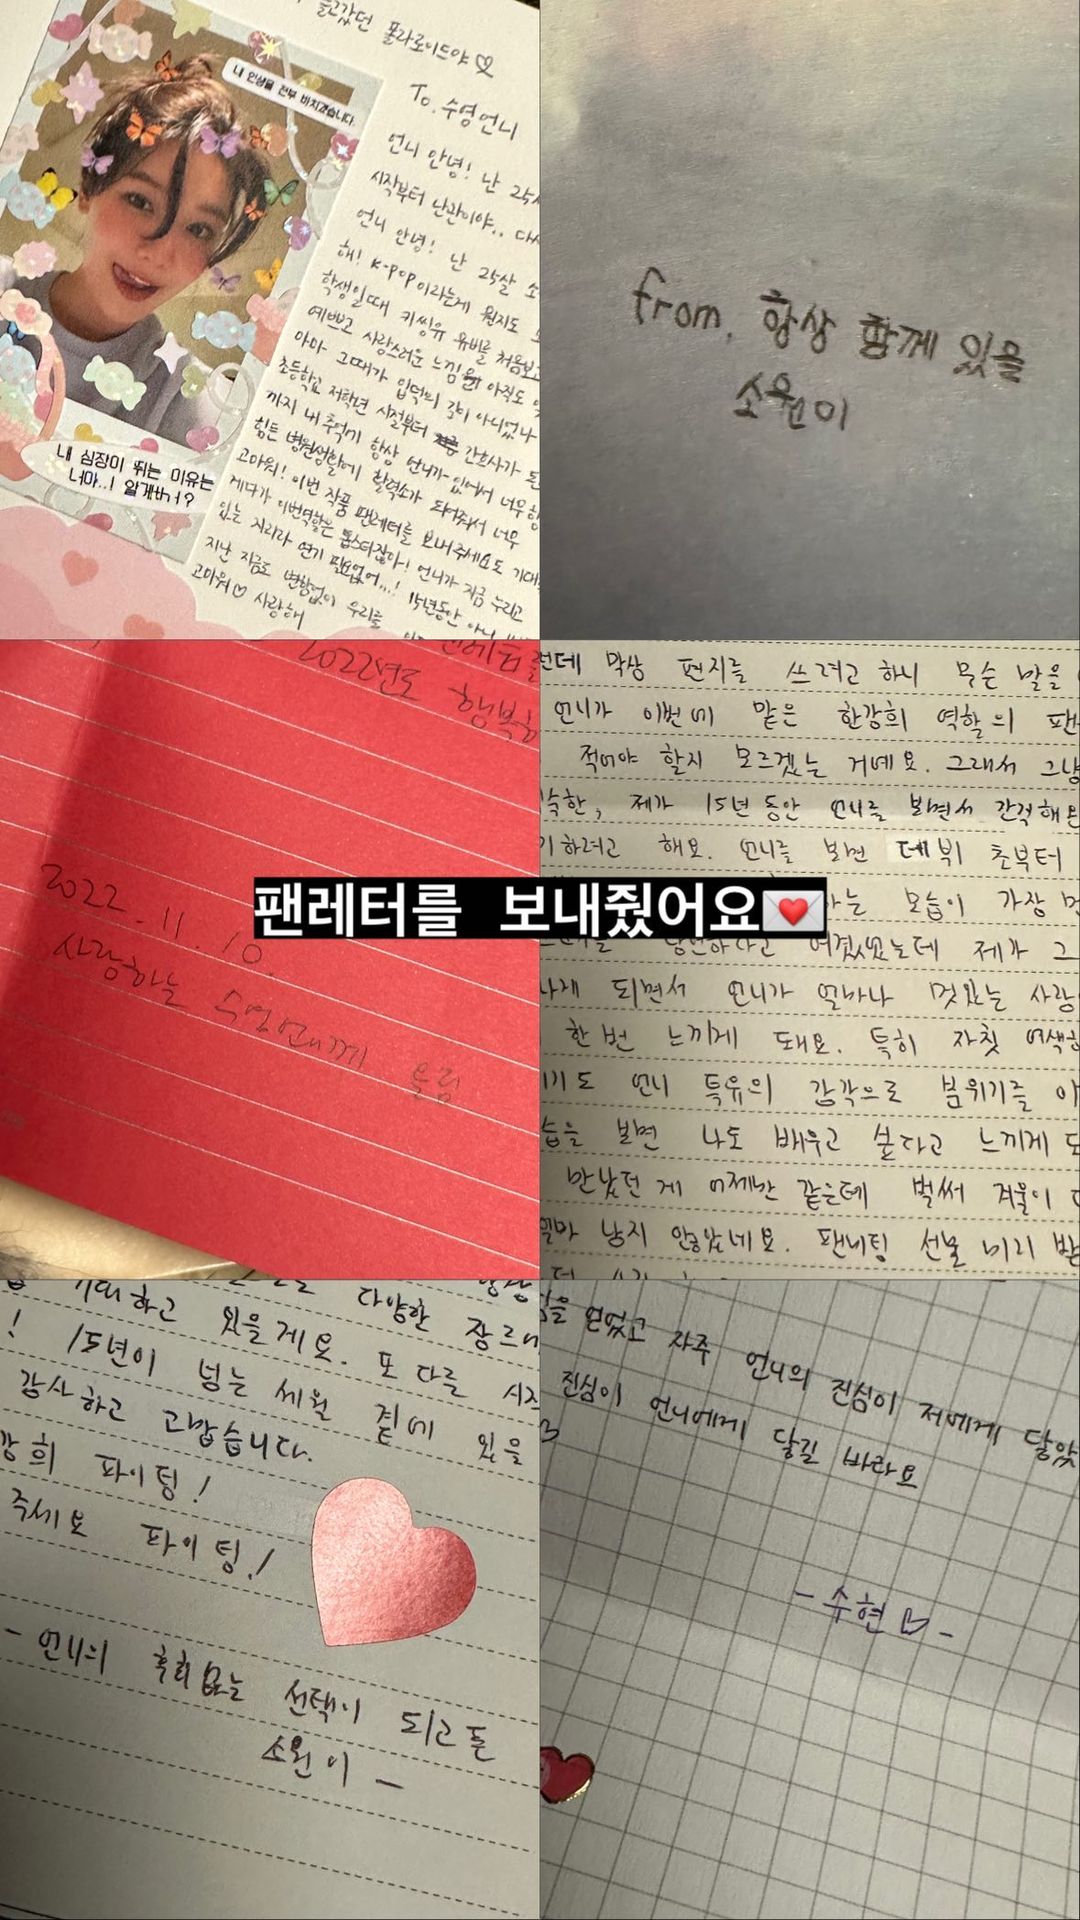 들고갔던 폴라로이드야♡
To. 수영언니
내 인생을 전부 바치겠습니다.
언니 안녕! 난 25살
시작부터 난관이야.. 다시
언니 안녕! 난 25살 소
해! K-pop이라는게 뭔지도 모
학생일때 키씽유 유비를 처음보고
예쁘고 사랑스러운 느낌을 아직도 잊
아마 그때가 입덕의 길이 아니었나
초등학교 저학년 시절부터 간호사가 된
까지 내 추억에 항상 언니가 있어서 너무 행
힘든 병원생활에 활력소가 되어줘서 너무
고마워! 이번 작품 팬레터를 보내주세요도 기대
게다가 이번역할은 톱스타잖아! 언니가 지금 누리고
있는 자리라 연기 필요없어...! 15년동안 아니
지난 지금도 변함없이 우리를
고마워♡ 사랑해
내 심장이 뛰는 이유는
너야..! 알게써?
from. 항상 함께 있을
소원이
2022년도 행복
2022.11.10.
사랑하는 수영언니께 올림
런데 막상 편지를 쓰려고 하니 무슨 말을
언니가 이번에 맡은 한강희 역할의 팬
적어야 할지 모르겠는 거예요. 그래서 그냥
숙한, 제가 15년 동안 언니를 보면서 간직해온
기하려고 해요. 언니를 보면 데뷔 초부터
팬레터를 보내줬어요💌
하는 모습이 가장 먼
당연하다고 여겼었는데 제가 그
나게 되면서 언니가 얼마나 멋있는 사람
한번 느끼게 돼요. 특히 자칫 어색
기도 언니 특유의 감각으로 분위기를 이
습을 보면 나도 배우고 싶다고 느끼게 되
만났던 게 어제만 같은데 벌써 겨울이 다
얼마 남지 않았네요. 팬미팅 선물 미리 받
기대하고 있을게요. 다양한 장르
! 15년이 넘는 세월 곁에 있을
또 다른 시작
감사하고 고맙습니다.
강희 파이팅!
주세요 파이팅!
- 언니의 후회없는 선택이 되고픈
소원이 -
힘을 얻었고 자주 언니의 진심이 저에게 닿았
진심이 언니에게 닿길 바라요
- 수현 ♡ -